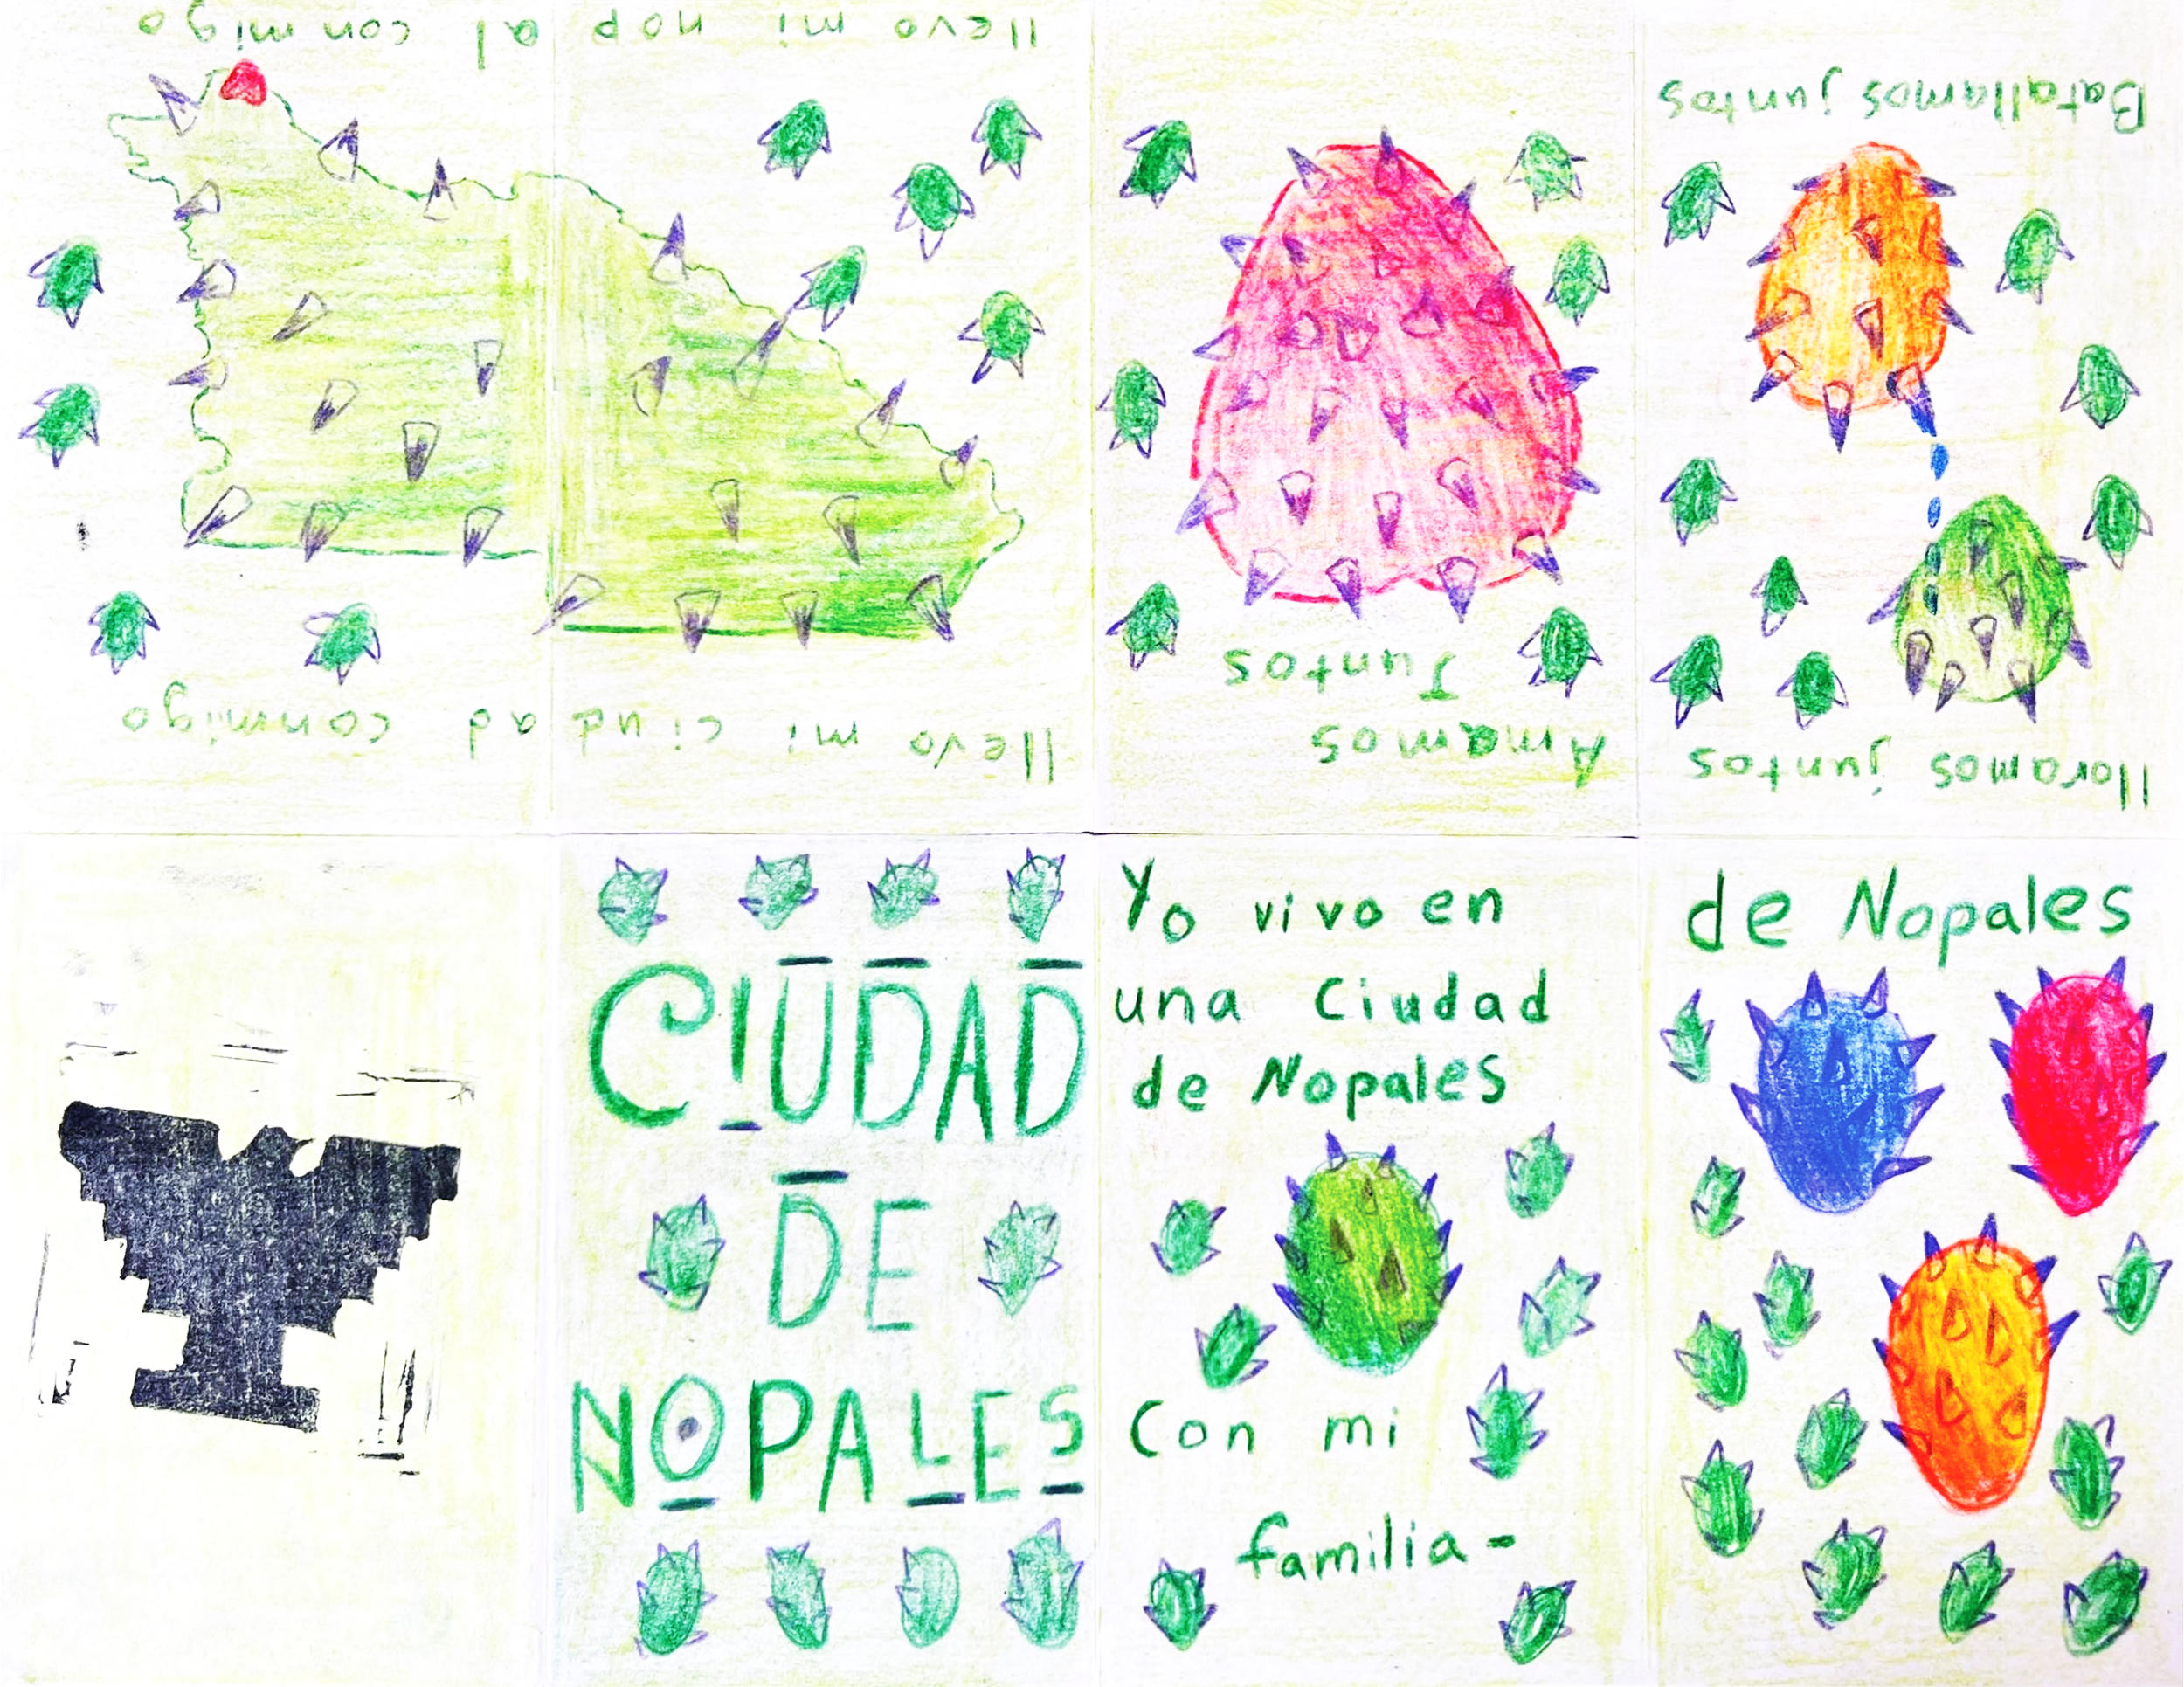 CIUDAD
DE
NOPALES
Yo vivo en
una Ciudad
de Nopales
Con mi
familia-
de Nopales
lloramos juntos
Batallamos juntos
Amamos
Juntos
llevo mi ciudad conmigo
llevo mi nopal conmigo